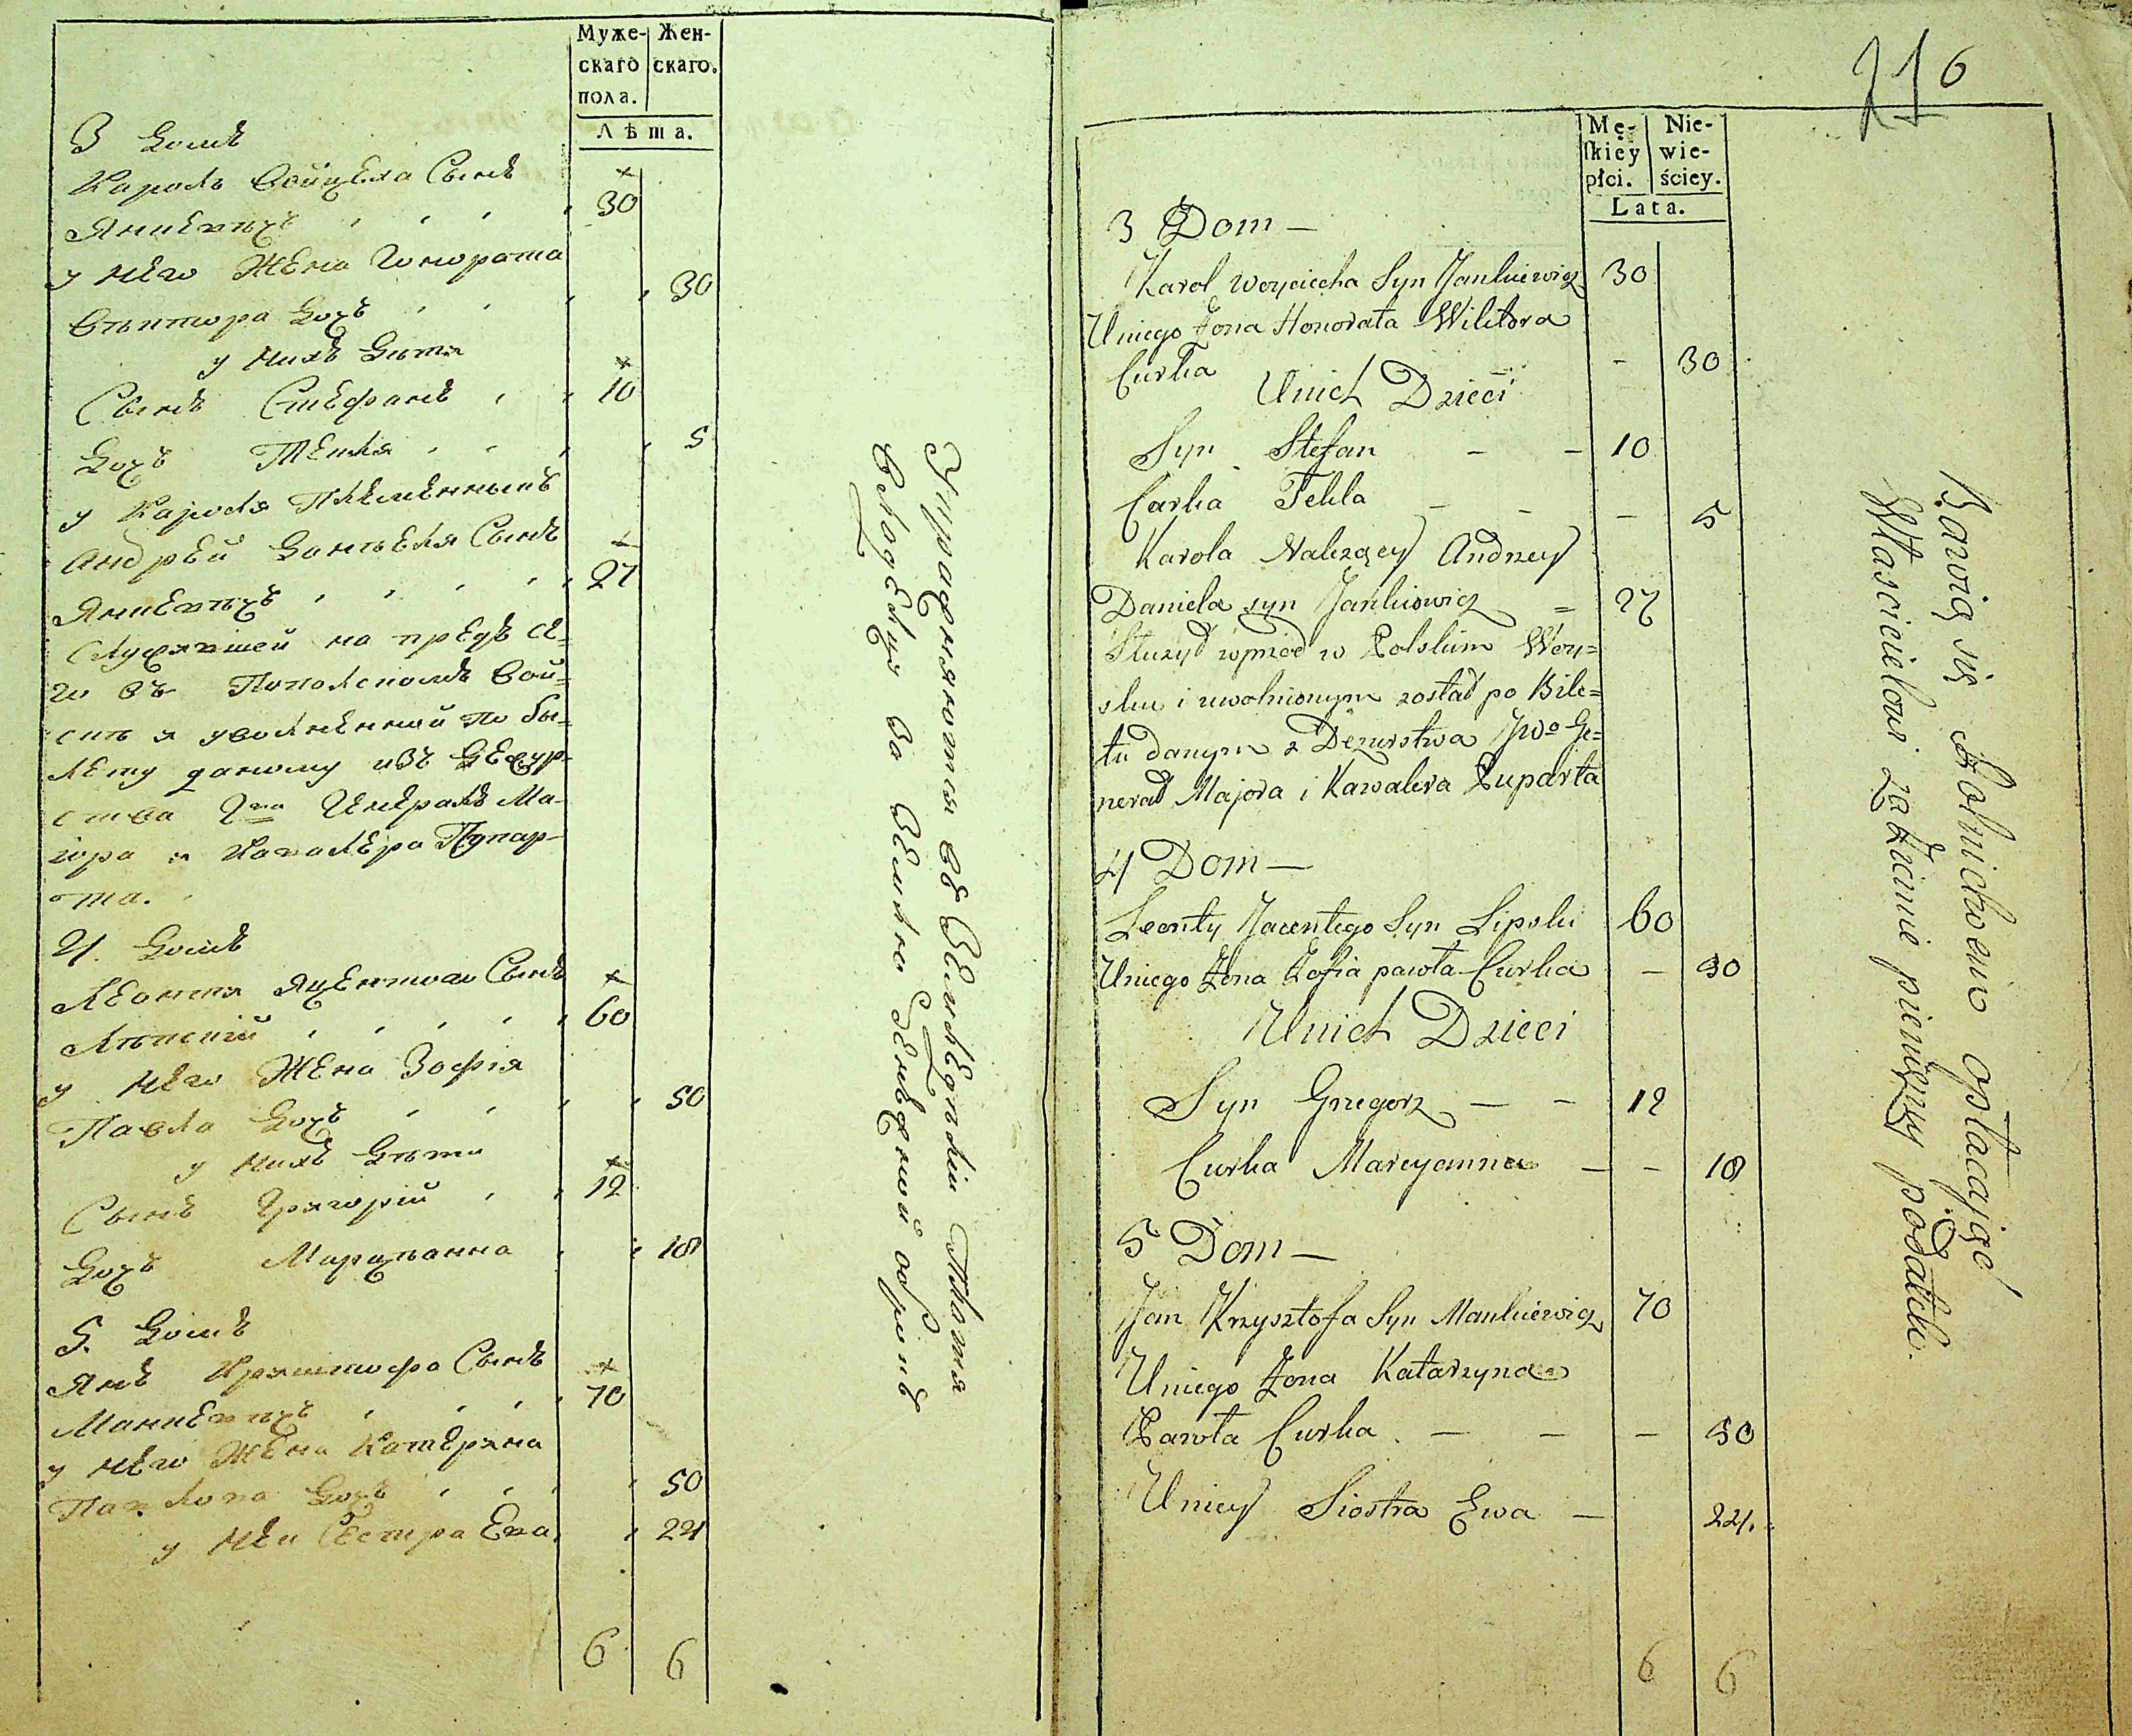 Муже-
скаго
пола.
Жен-
скаго.
Лѣта.
3 Домъ
Кароль Войцеха Сынъ
Янкевичъ 30
у него Жена Гонората
Виктора Дочь 30
у нихъ Дети
Сынъ Стефанъ 10
Дочь Текля 5
у Кароля Племенникъ
Андрей Даніеля Сынъ
Янкевичъ 27
Служившей на предъ се-
го въ Польскомъ Вой-
ске и уволненный по Би-
лету данному изъ Дежур-
ства Г-на Генералъ Ма-
іора и Каволера Пупар-
та.
4. Домъ
Леонти Яцентего Сынъ
Липскій 60
у него Жена Зофія
Павла Дочь 50
у нихъ Дети
Сынъ Григорій 12
Дочь Марцианна 18
5. Домъ
Янъ Криштофа Сынъ
Манкевичъ 70
у него Жена Катерина
Павлова Дочь 50
у неи Сестра Ева 24
6 6
Упражняются въ Земледелии Платя
Владельцу за Землю денежной оброкъ
216
Mę-
skiey
płci.
Nie-
wie-
ściey.
Lata.
3 Dom —
Karol Woyciecha Syn Jankiewicz 30
Uniego Żona Honorata Wiktora
Curka - 30
Unich Dzieci
Syn Stefan - - 10
Carka Tekla - - - 5
Karola Należący Andrzey
Daniela syn Jankiewicz = 27
Służył wprzód w Polskim Woy=
sku i uwolnionym został po Bile=
tu danym z Dezurstwa Jwo Ge=
nerał Majora i Kawalera Puparta
4 Dom —
Leonty Jacentego Syn Lipski 60
Uniego Żona Zofia pawła Curka - 30
Unich Dzieci
Syn Grzegorz - - 12
Curka Marcyanna - - 18
5 Dom —
Jan Krzysztofa Syn Mankiewicz 70
Uniego Żona Katarzyna
Pawła Curka - - - 50
Uniey Siostra Ewa - 24.
6 6
Bawią się Rolnictwem opłacaiąc
Własicielowi zaZiemie pieniężny podatek.